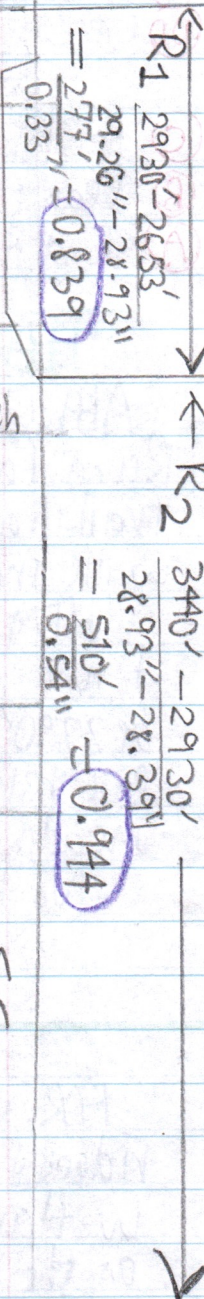 R1 2930' - 2653'
29.26" - 28.93"
= 277'
0.33" = 0.839
← R2 3440' - 2930'
28.93" - 28.39"
= 510'
0.54" = 0.944